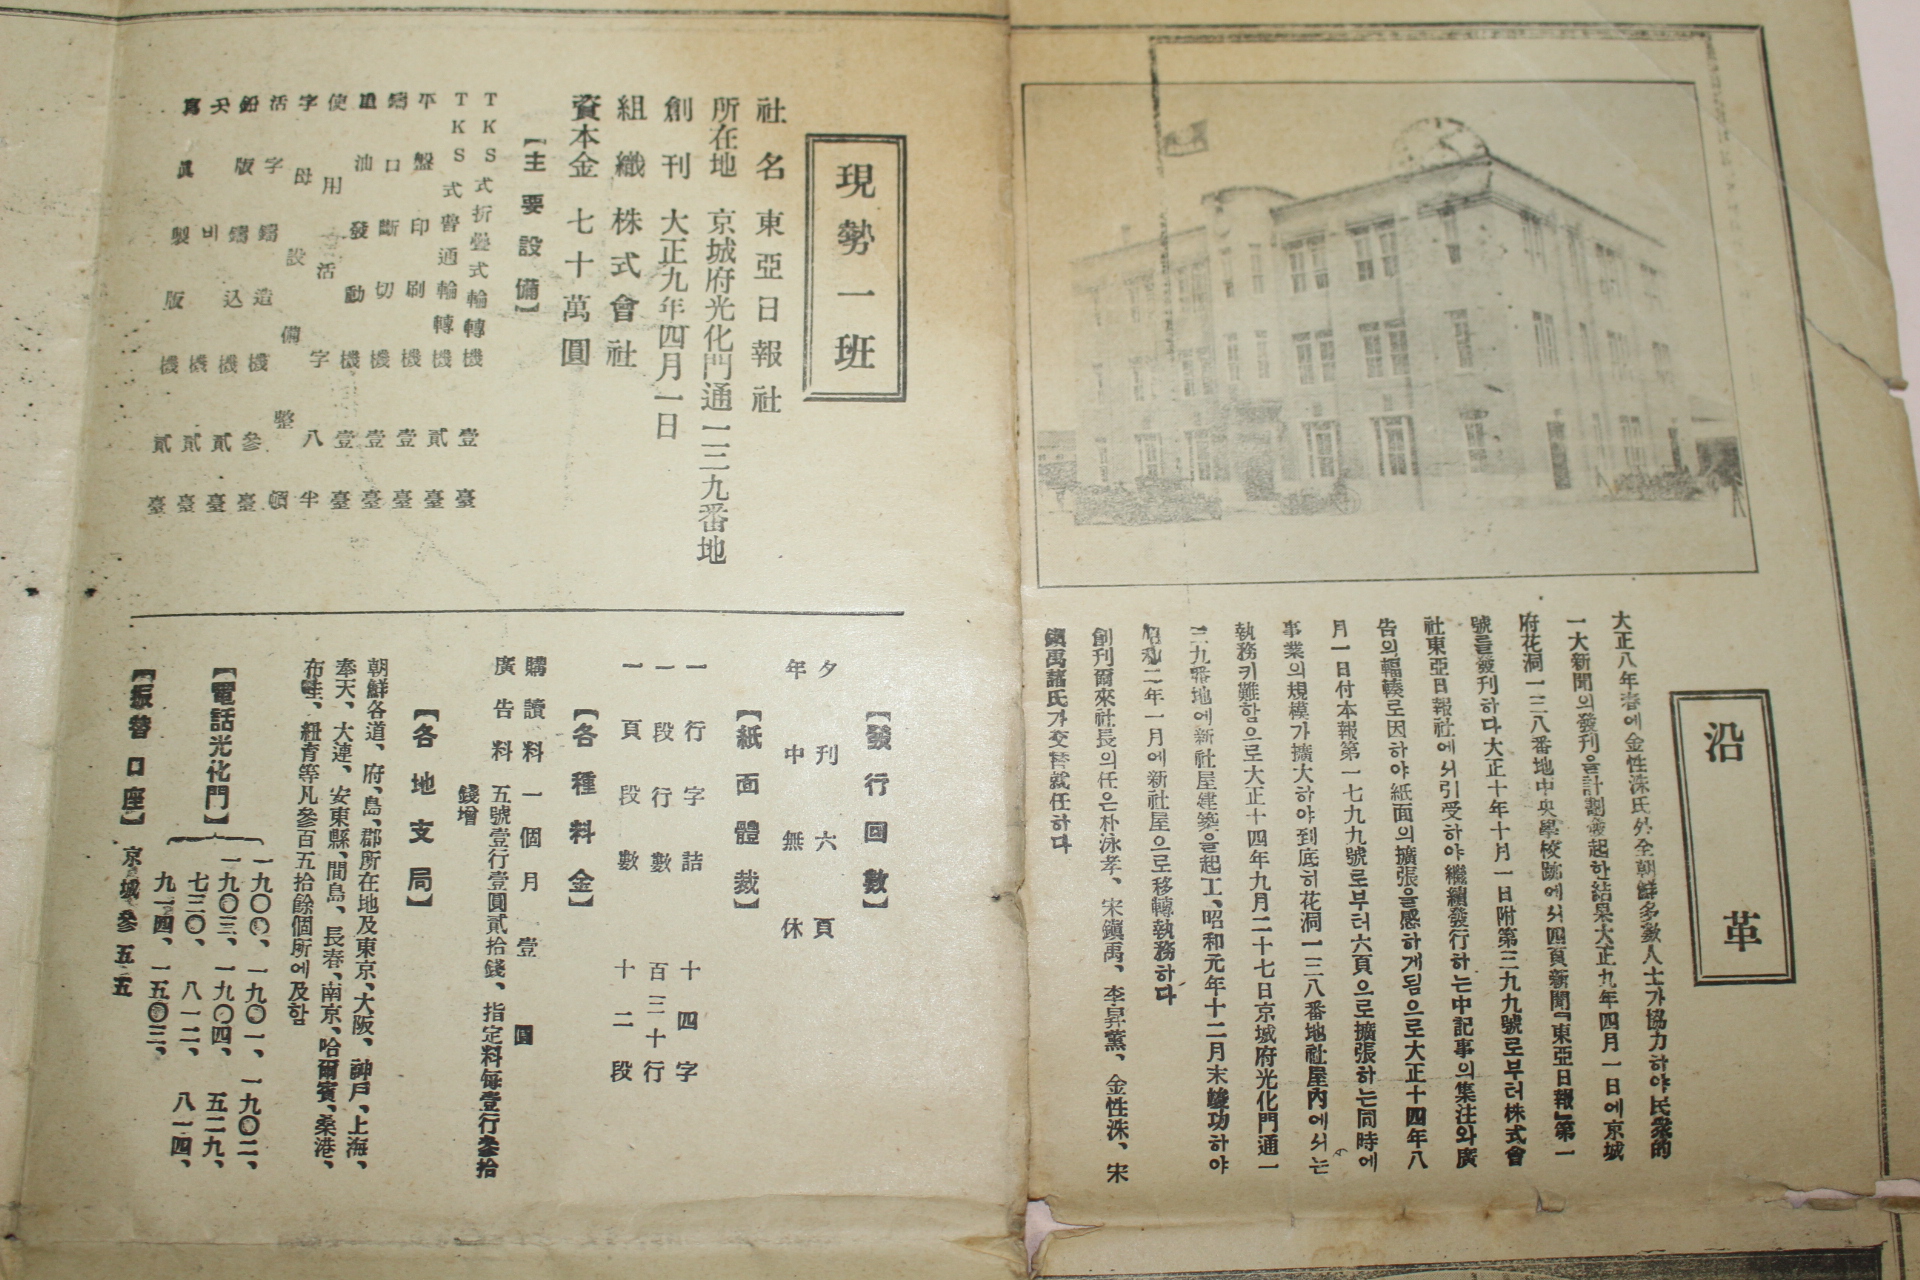 沿革
大正八年春에金性洙氏外全朝鮮多數人士가協力하야民衆的
一大新聞의發刊을計劃發起한結果大正九年四月一日에京城
府花洞一三八番地中央學校跡에서四頁新聞『東亞日報』第一
號를發刊하다大正十年十月一日附第三九九號로부터株式會
社東亞日報社에서引受하야繼續發行하는中記事의集注와廣
告의輻輳로因하야紙面의擴張을感하게됨으로大正十四年八
月一日付本報第一七九九號로부터六頁으로擴張하는同時에
事業의規模가擴大하야到底히花洞一三八番地社屋內에서는
執務키難함으로大正十四年九月二十七日京城府光化門通一
三九番地에新社屋建築을起工、昭和元年十二月末竣功하야
昭和二年一月에新社屋으로移轉執務하다
創刊爾來社長의任은朴泳孝、宋鎭禹、李昇薰、金性洙、宋
鎭禹諸氏가交替就任하다
現勢一班
社名 東亞日報社
所在地 京城府光化門通一三九番地
創刊 大正九年四月一日
組織 株式會社
資本金 七十萬圓
【主要設備】
TKS式折疊式輪轉機 壹臺
TKS式普通輪轉機 貳臺
平盤印刷機 壹臺
鑄口斷切機 壹臺
重油發動機 壹臺
使用活字 八半
字母設備 整頓
活字鑄造機 參臺
鉛版鑄込機 貳臺
天비機 貳臺
寫眞製版機 貳臺
【發行回數】
夕刊六頁
年中無休
【紙面體裁】
一行字詰 十四字
一段行數 百三十行
一頁段數 十二段
【各種料金】
購讀料 一個月 壹圓
廣告料 五號壹行壹圓貳拾錢、指定料每壹行參拾
錢增
【各地支局】
朝鮮各道、府、島、郡所在地及東京、大阪、神戶、上海、
奉天、大連、安東縣、間島、長春、南京、哈爾賓、桑港、
布哇、紐育等凡參百五拾餘個所에及함
【電話光化門】
一九〇〇、一九〇一、一九〇二、
一九〇三、一九〇四、五二九、
七三〇、八一二、八一四、
九一四、一五〇三、
【振替口座】京城參五五